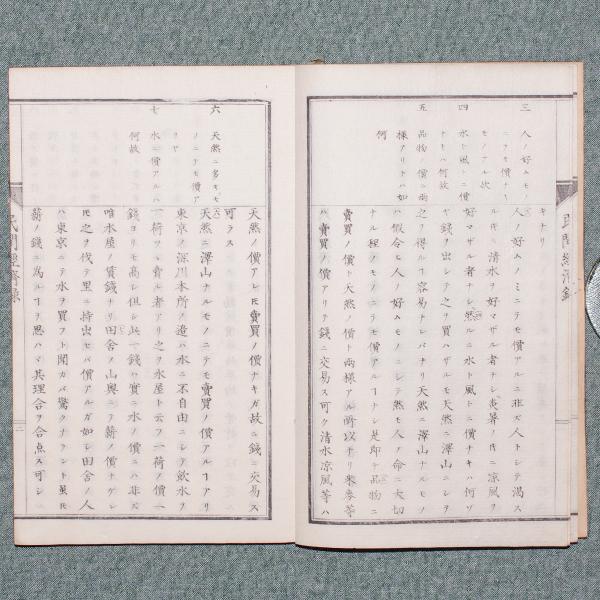 三 人ノ好ムモノ
ニテモ價ナキ
モノアル次
四 水ト風トニ價
ナキハ何故
五 品物ノ價ニ兩
樣アリトハ如
何
キナリ
人ノ好ムノミニテモ價アルニ非ズ人トシテ渇ス
ル片ニ清水ヲ好マザル者ナシ炎暑ノ片ニ涼風ヲ
好マザル者ナシ然ルニ水ト風トニ價ナキハ何ゾ
ヤ錢ヲ出シテ之ヲ買ハザルモ天然ニ澤山ニシテ
之ヲ得ルヿ容易ナレバナリ天然ニ澤山ナルモノ
ハ假令ヒ人ノ好ムモノニシテ然モ人ノ命ニ大切
ナル程ノモノニテモ價アルヿナシ是即チ品物ニ
賣買ノ價ト天然ノ價ト兩樣アル所以ナリ米麥等
ハ賣買ノ價アリテ錢ニ交易ス可ク清水涼風等ハ
民間經濟錄
六 天然ニ多キモ
ノニテモ價ア
リヤ
七 水ニ價アルハ
何故
天然ノ價アレ𪜈賣買ノ價ナキガ故ニ錢ニ交易ス
可ラズ
天然ニ澤山ナルモノニテモ賣買ノ價アルヿアリ
東京ノ深川本所ノ邊ハ水ニ不自由ニシテ飲水ヲ
一荷ヅヽ賣ル者アリ之ヲ水屋ト云フ一荷ノ價一
錢ヨリモ高シ但シ此一錢ハ實ニ水ノ價ニハ非ズ
唯水屋ノ賃錢ナリ田舍ノ山奧ニテ薪ノ價ナケレ
𪜈之ヲ伐テ里ニ持出セバ價アルガ如シ田舍ノ人
ハ東京ニテ水ヲ買フト聞カバ驚クナラント雖𪜈
薪ノ錢ニ爲ルヿヲ思ハヾ其理合ヲ合点ス可シ
民間經濟錄
二